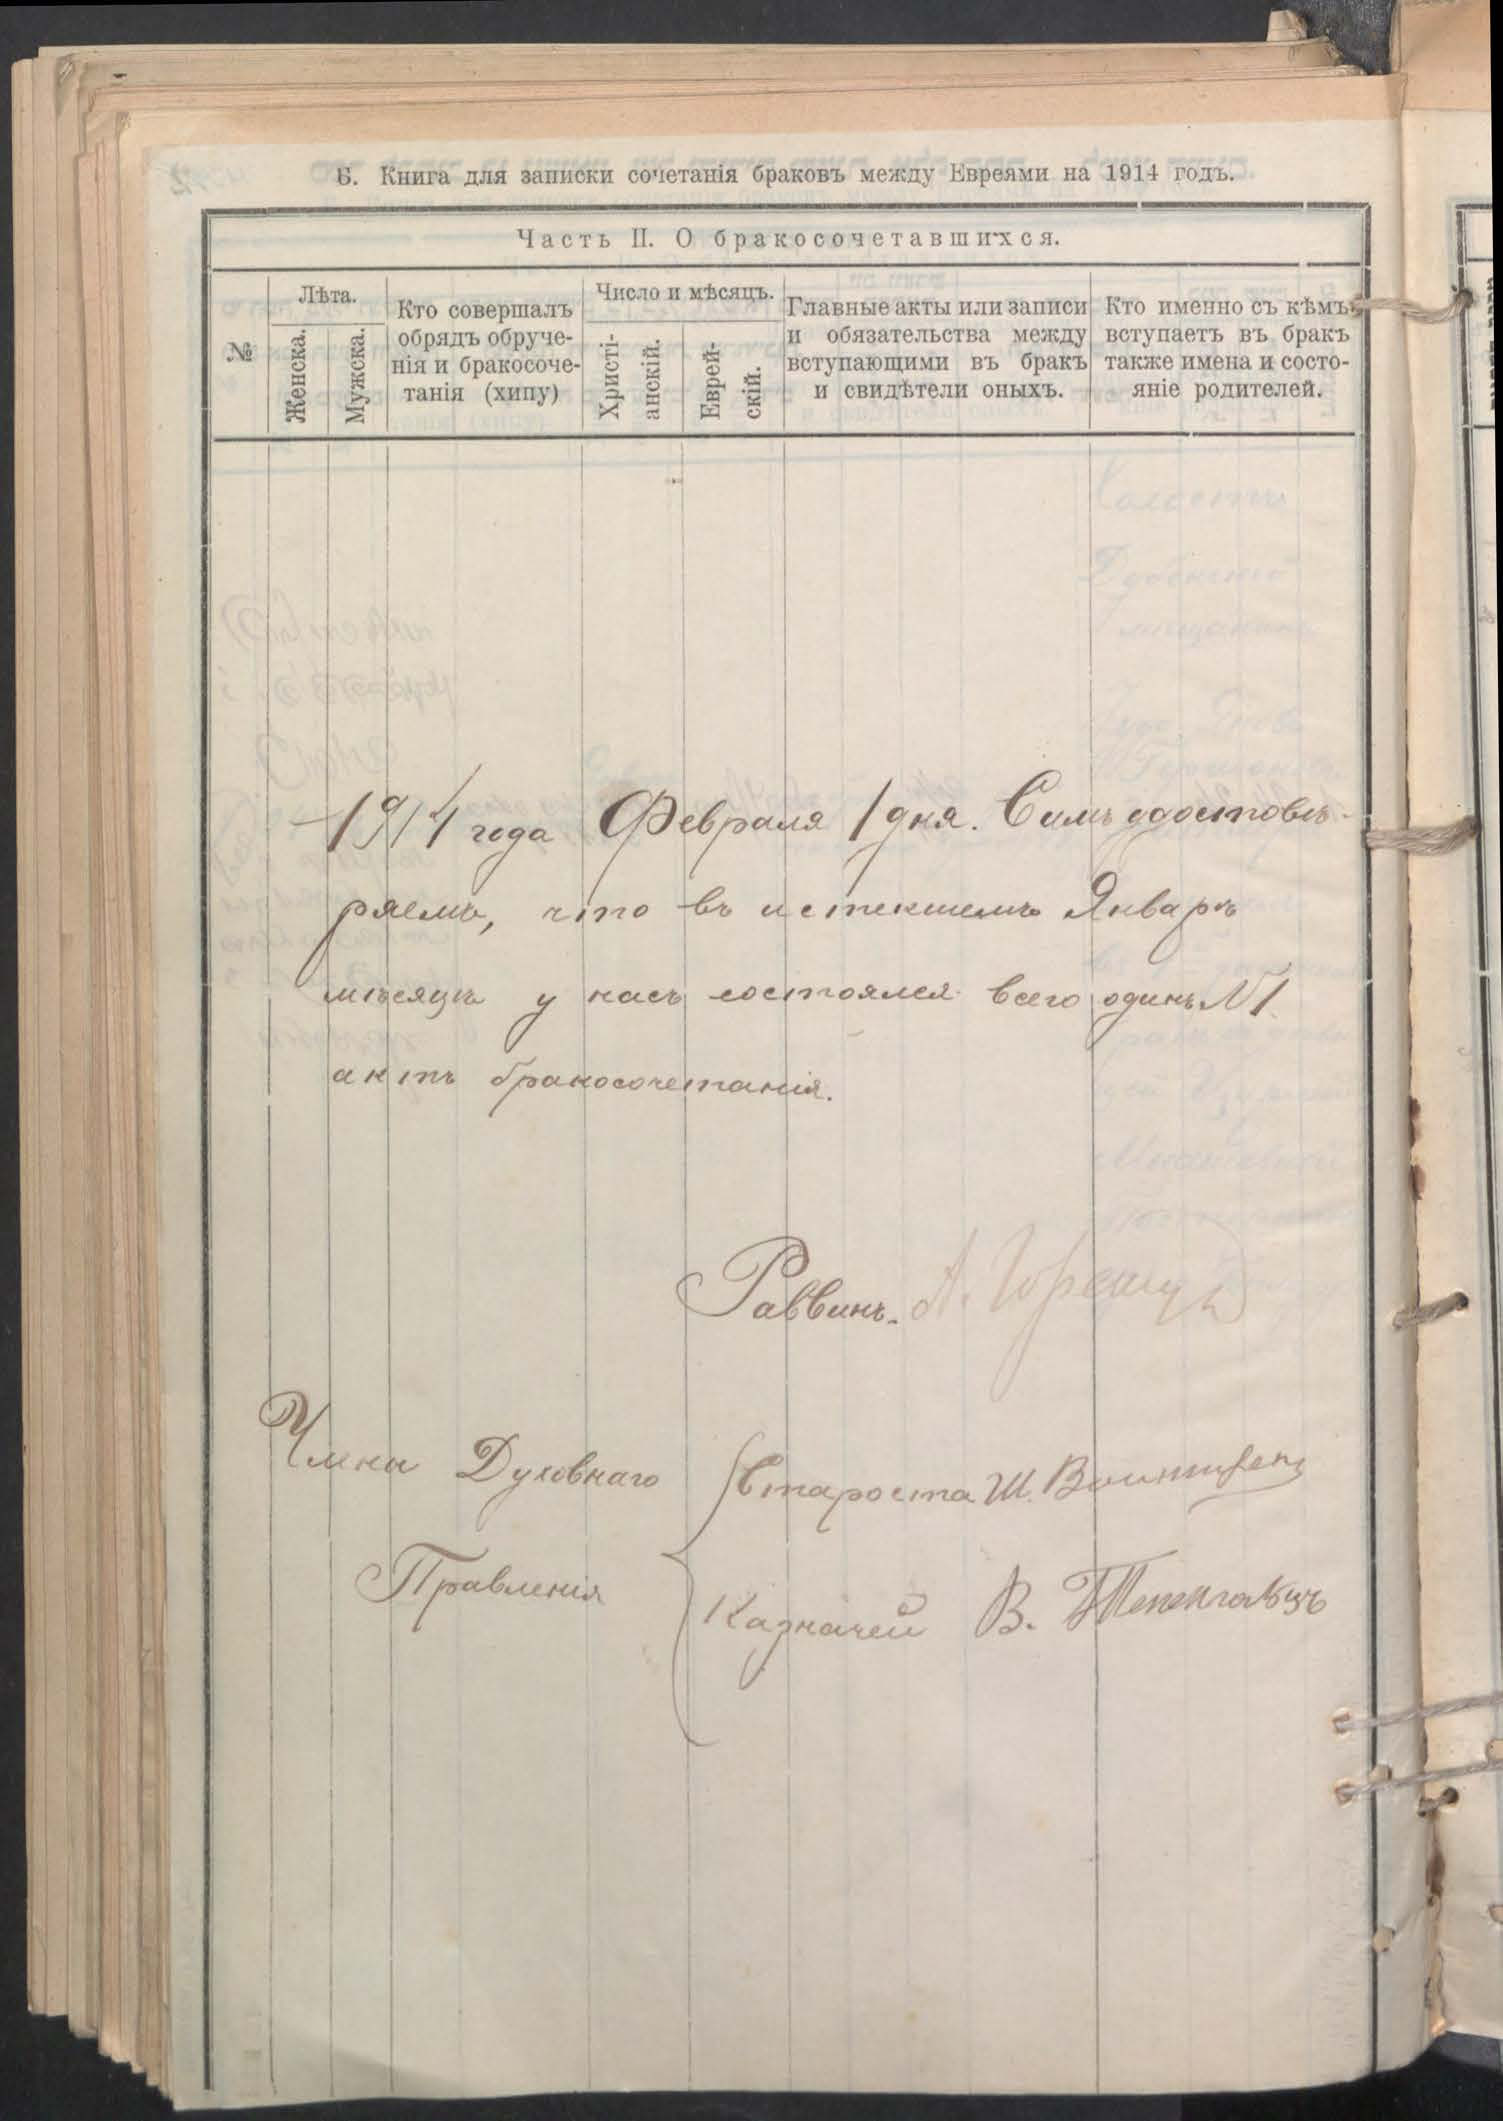 Б. Книга для записки сочетанія браковъ между Евреями на 1914 годъ.
Часть II. О бракосочетавшихся.
№
Лѣта.
Женска.
Мужска.
Кто совершалъ
обрядъ обруче-
нія и бракосоче-
танія (хипу)
Число и мѣсяцъ.
Христі-
анскій.
Еврей-
скій.
Главные акты или записи
и обязательства между
вступающими въ бракъ
и свидѣтели оныхъ.
Кто именно съ кѣмъ
вступаетъ въ бракъ
также имена и состо-
яніе родителей.
1914 года Февраля 1 дня. Симъ удостовѣ-
ряемъ, что въ истекшемъ Январѣ
мѣсяцѣ у насъ состоялся всего одинъ №1
актъ бракосочетанія.
Раввинъ. А.
Члены Духовнаго
Правленія
Староста Ш.
Казначей В.